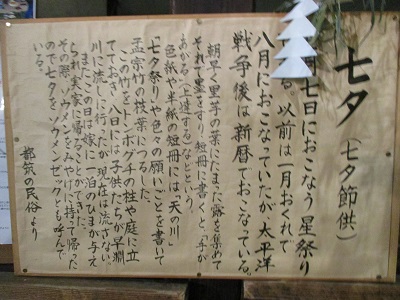 七夕（七夕節供）
月七日におこなう星祭り
る。以前は一月おくれで
八月におこなっていたが、太平洋
戦争後は新暦でおこなっている。
朝早く里芋の葉にたまった露を集めて
それで墨をすり、短冊に書くと、「手が
あがる」（上達する）などという。
色紙や半紙の短冊には「天の川」
「七夕祭り」や色々の願いごとを書いて
孟宗竹の枝葉につるした。
この竹をトンボグチの柱や庭に立
ておき、八日には子供たちが早渕
川に流しに行ったが、現在は流さない。
またこの日は嫁に一泊のひまが与え
られ実家に帰ることができた。
その際、ソウメンをみやげに持って帰った
ので七夕をソウメンゼックとも呼んで
いる。
都筑の民俗より